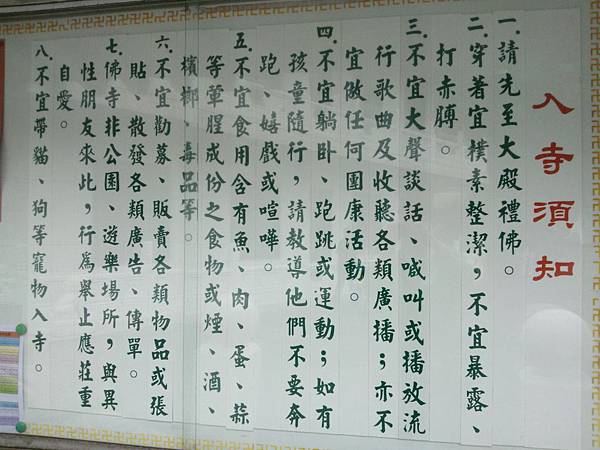 入寺須知
一.請先至大殿禮佛。
二.穿著宜樸素整潔,不宜暴露、
打赤膊。
三.不宜大聲談話、喊叫或播放流
行歌曲及收聽各類廣播;亦不
宜做任何團康活動。
四.不宜躺卧、跑跳或運動;如有
孩童隨行,請教導他們不要奔
跑、嬉戲或喧嘩。
五.不宜食用含有魚、肉、蛋、蒜
等葷腥成份之食物或煙、酒、
檳榔、毒品等。
六.不宜勸募、販賣各類物品或張
貼、散發各類廣告、傳單。
七.佛寺非公園、遊樂場所,與異
性朋友來此,行為舉止應莊重
自愛。
八.不宜帶貓、狗等寵物入寺。